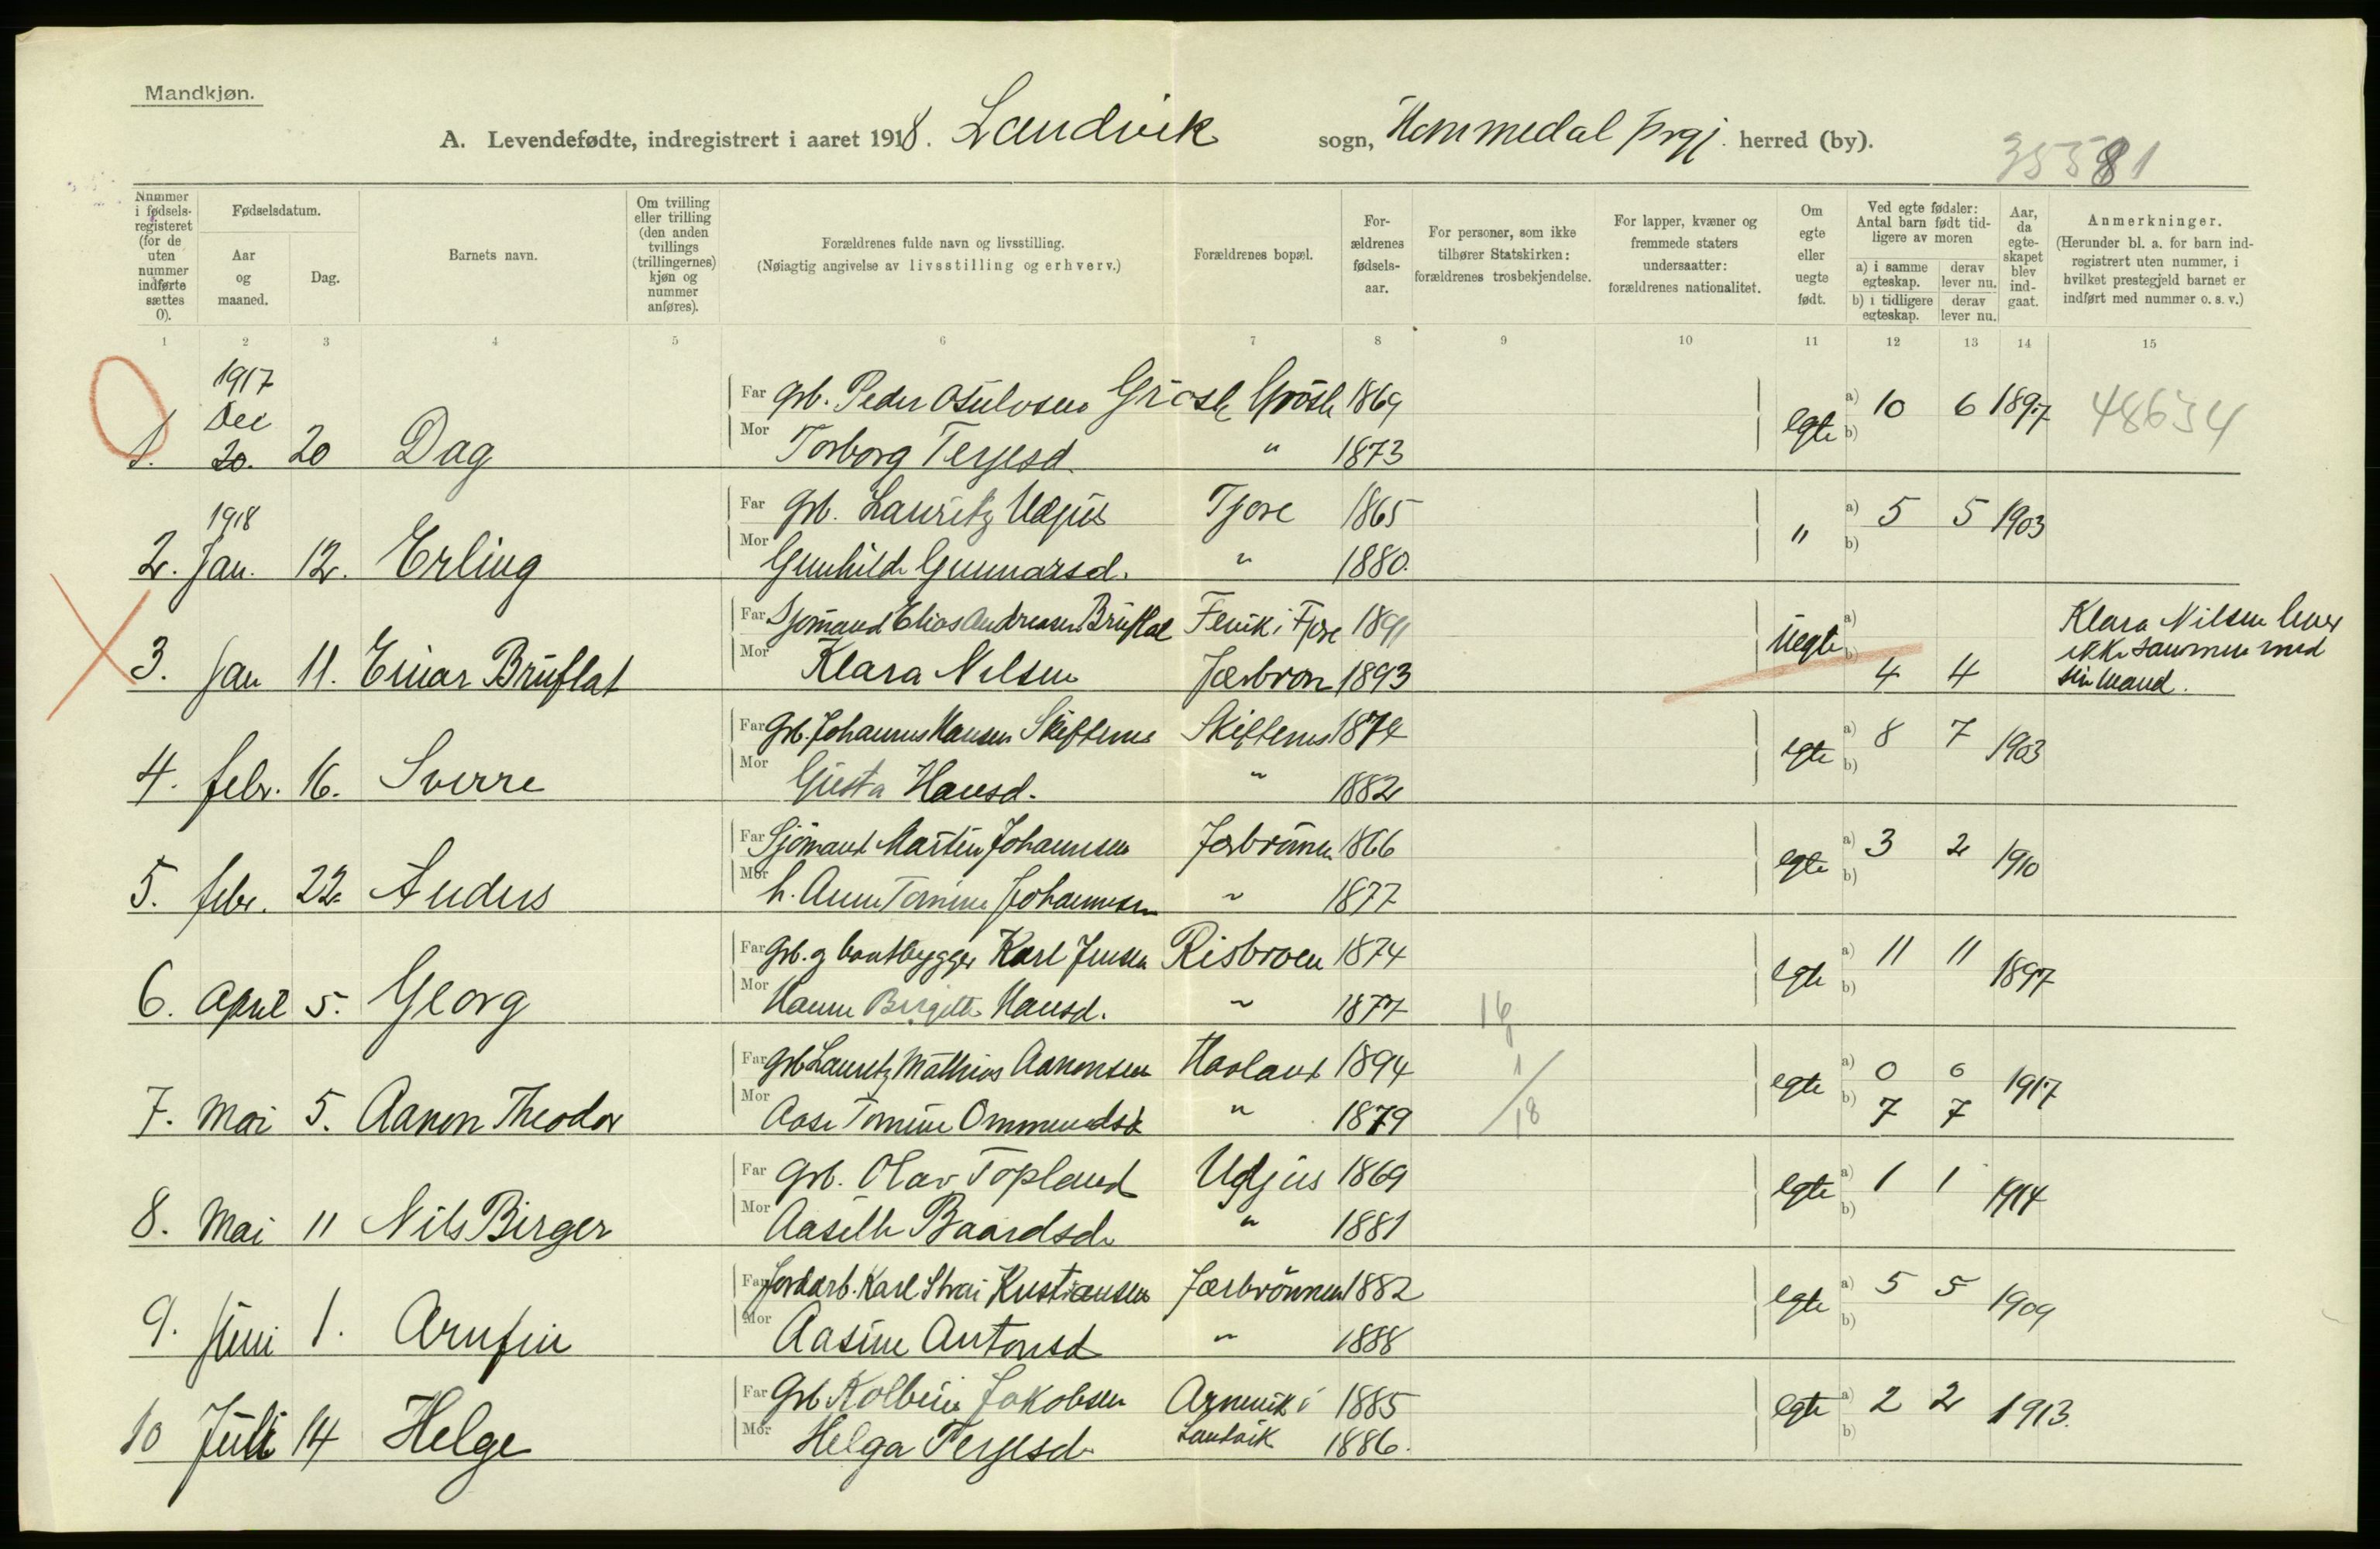 Mandkjøn.
A. Levendefødte, indregistrert i aaret 1918. Landvik sogn, Hommedal prgj. herred (by).
35581
Nummer i fødselsregisteret (for de uten nummer indførte sættes 0).
Fødselsdatum.
Aar og maaned.
Dag.
Barnets navn.
Om tvilling eller trilling (den anden tvillings (trillingernes) kjøn og nummer anføres).
Forældrenes fulde navn og livsstilling.
(Nøiagtig angivelse av livsstilling og erhverv.)
Forældrenes bopæl.
Forældrenes fødselsaar.
For personer, som ikke tilhører Statskirken: forældrenes trosbekjendelse.
For lapper, kvæner og fremmede staters undersaatter: forældrenes nationalitet.
Om egte eller uegte født.
Ved egte fødsler: Antal barn født tidligere av moren
a) i samme egteskap. derav lever nu.
b) i tidligere egteskap. derav lever nu.
Aar, da egteskapet blev indgaat.
Anmerkninger.
(Herunder bl. a. for barn indregistrert uten nummer, i hvilket prestegjeld barnet er indført med nummer o. s. v.)
1 2 3 4 5 6 7 8 9 10 11 12 13 14 15
1917
Far grb. Peder Osulvsen Grøsle Grøsle 1869 a) 10 6 1897 48634
1. Dec 20. 20 Dag Mor Torborg Terjesd. " 1873 egte b)
1918
Far grb. Lauritz Udjus Tjore 1865 a) 5 5 1903
2. Jan. 12. Erling Mor Gunhild Gunnarsd. " 1880. " b)
Far Sjømand Elias Andreasen Bruflat Fevik i Fjære 1891 a) Klara Nilsen lever
3. Jan 11. Einar Bruflat Mor Klara Nilsen Jærbron 1893 uegte b) 4 4 ikke sammen med
sin mand.
Far Grb. Johannes Hansen Skiftenes Skiftenes 1874 a) 8 7 1903
4. febr. 16. Sverre Mor Gusta Hansd. " 1882 egte b)
Far Sjømand Martin Johannsen Jærbrønnen 1866 a) 3 2 1910
5. febr. 22. Anders Mor h. Anne Tomine Johannesen " 1877 egte b)
Far Grb. og baatbygger Karl Jensen Risbroen 1874 a) 11 11 1897
6. April 5. Georg Mor Hanne Birgitte Hansd. " 1877 16 egte b)
Far Grb Lauritz Mathias Aanonsen Havland 1894 1 a) 0 0 1917
7. Mai 5. Aanon Theodor Mor Aase Tomine Ommundsd. " 1879 18 egte b) 7 7
Far Grb. Olav Topland Udjus 1869 a) 1 1 1914
8. Mai 11 Nils Birger Mor Aasille Baardsd. " 1881 egte b)
Far Jordarb. Karl Strai Kristiansen Jærbrønnen 1882 a) 5 5 1909
9. Juni 1. Arnfin Mor Aasine Antonsd " 1888 egte b)
Far Grb Kolbein Jakobsen Arnevik i 1885 a) 2 2 1913.
10 Juli 14 Helge Mor Helga Terjesd. Landvik 1886. egte b)